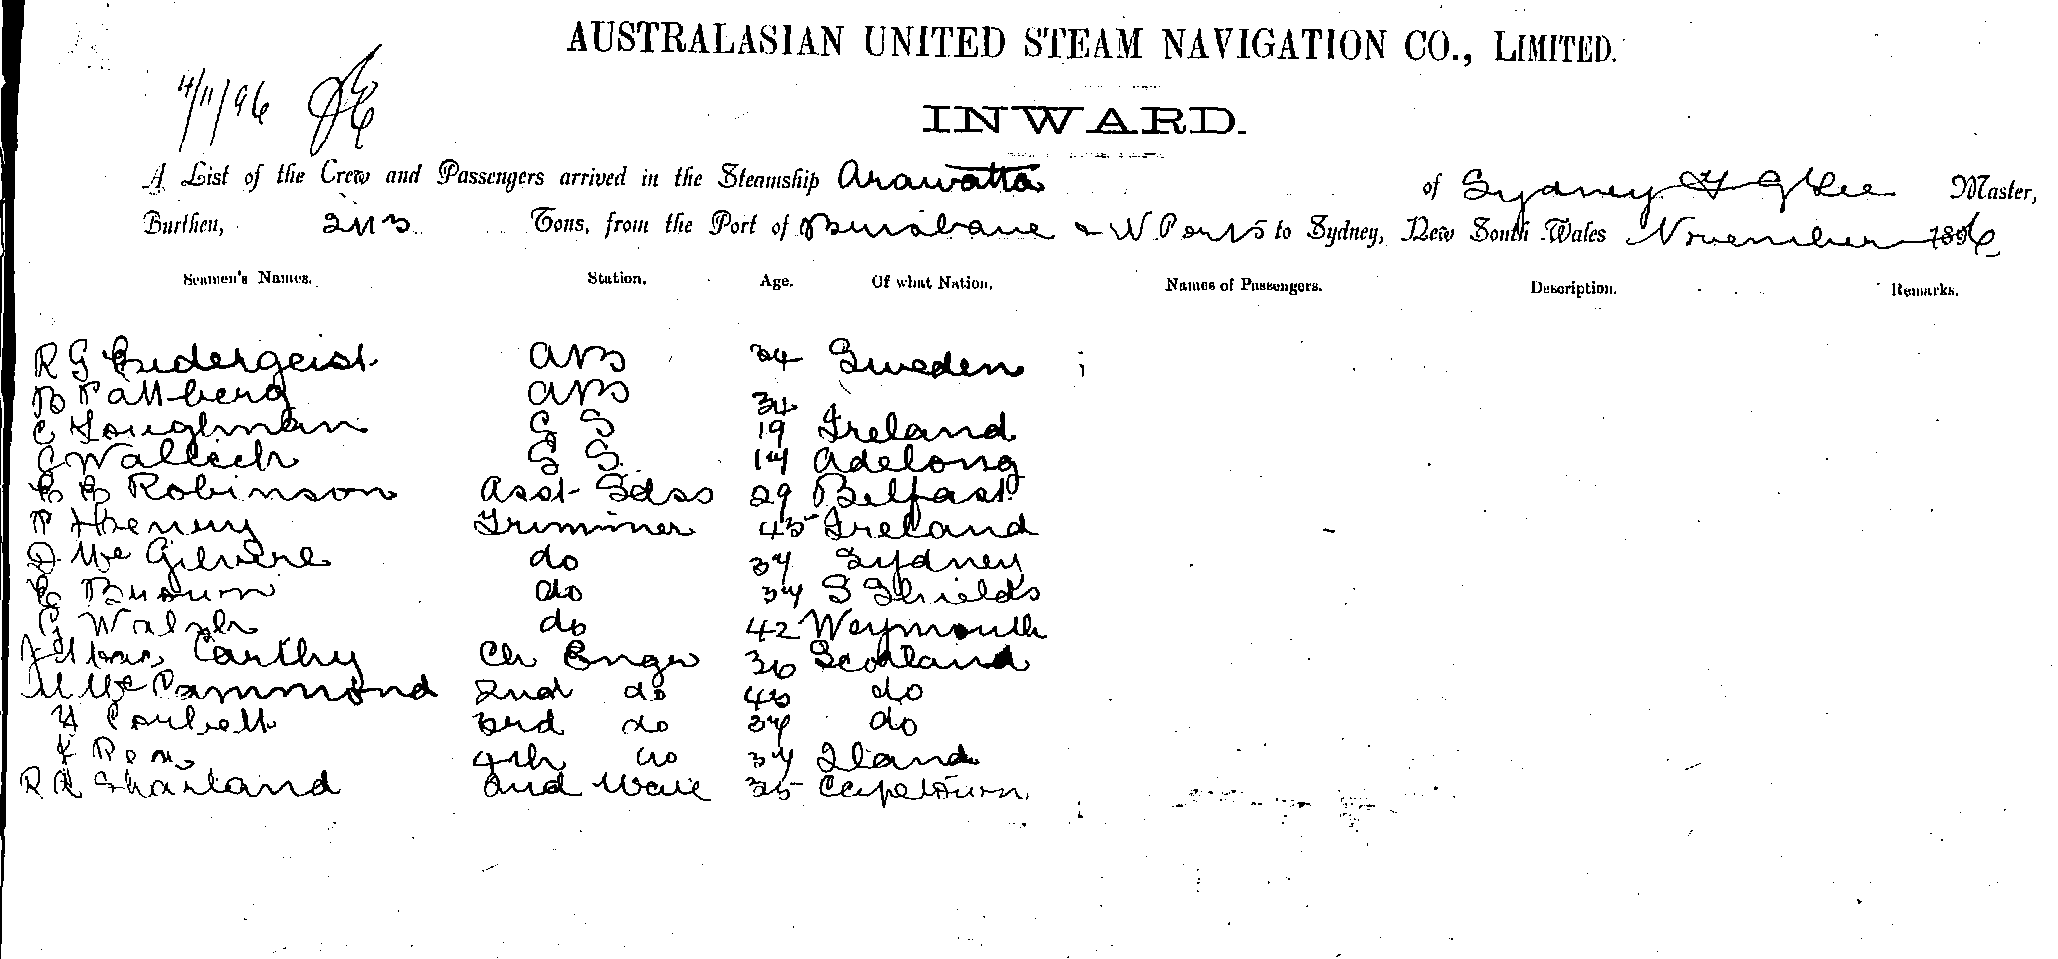 AUSTRALASIAN UNITED STEAM NAVIGATION CO., LIMITED.
4/11/96
INWARD.
A List of the Crew and Passengers arrived in the Steamship Arawatta of Sydney Master,
Burthen, 2113 Tons, from the Port of Brisbane & W Ports to Sydney, New South Wales November 1896
Seamen's Names. Station. Age. Of what Nation. Names of Passengers. Description. Remarks.
R G AB 24 Sweden
B Pattberg AB 34
C Loughman S S 19 Ireland
C Wallech S S 17 Adelong
E E Robinson Asst Sdss 29 Belfast
P Henery Trimmer 45 Ireland
D McGilvere do 37 Sydney
E Brown do 34 S Shields
G Walsh do 42 Weymouth
Carthy Ch Engr 36 Scotland
M McCammond 2nd do 43 do
H Corbett 3rd do 34 do
4th do 34
R R Sharland 2nd 35 Capetown